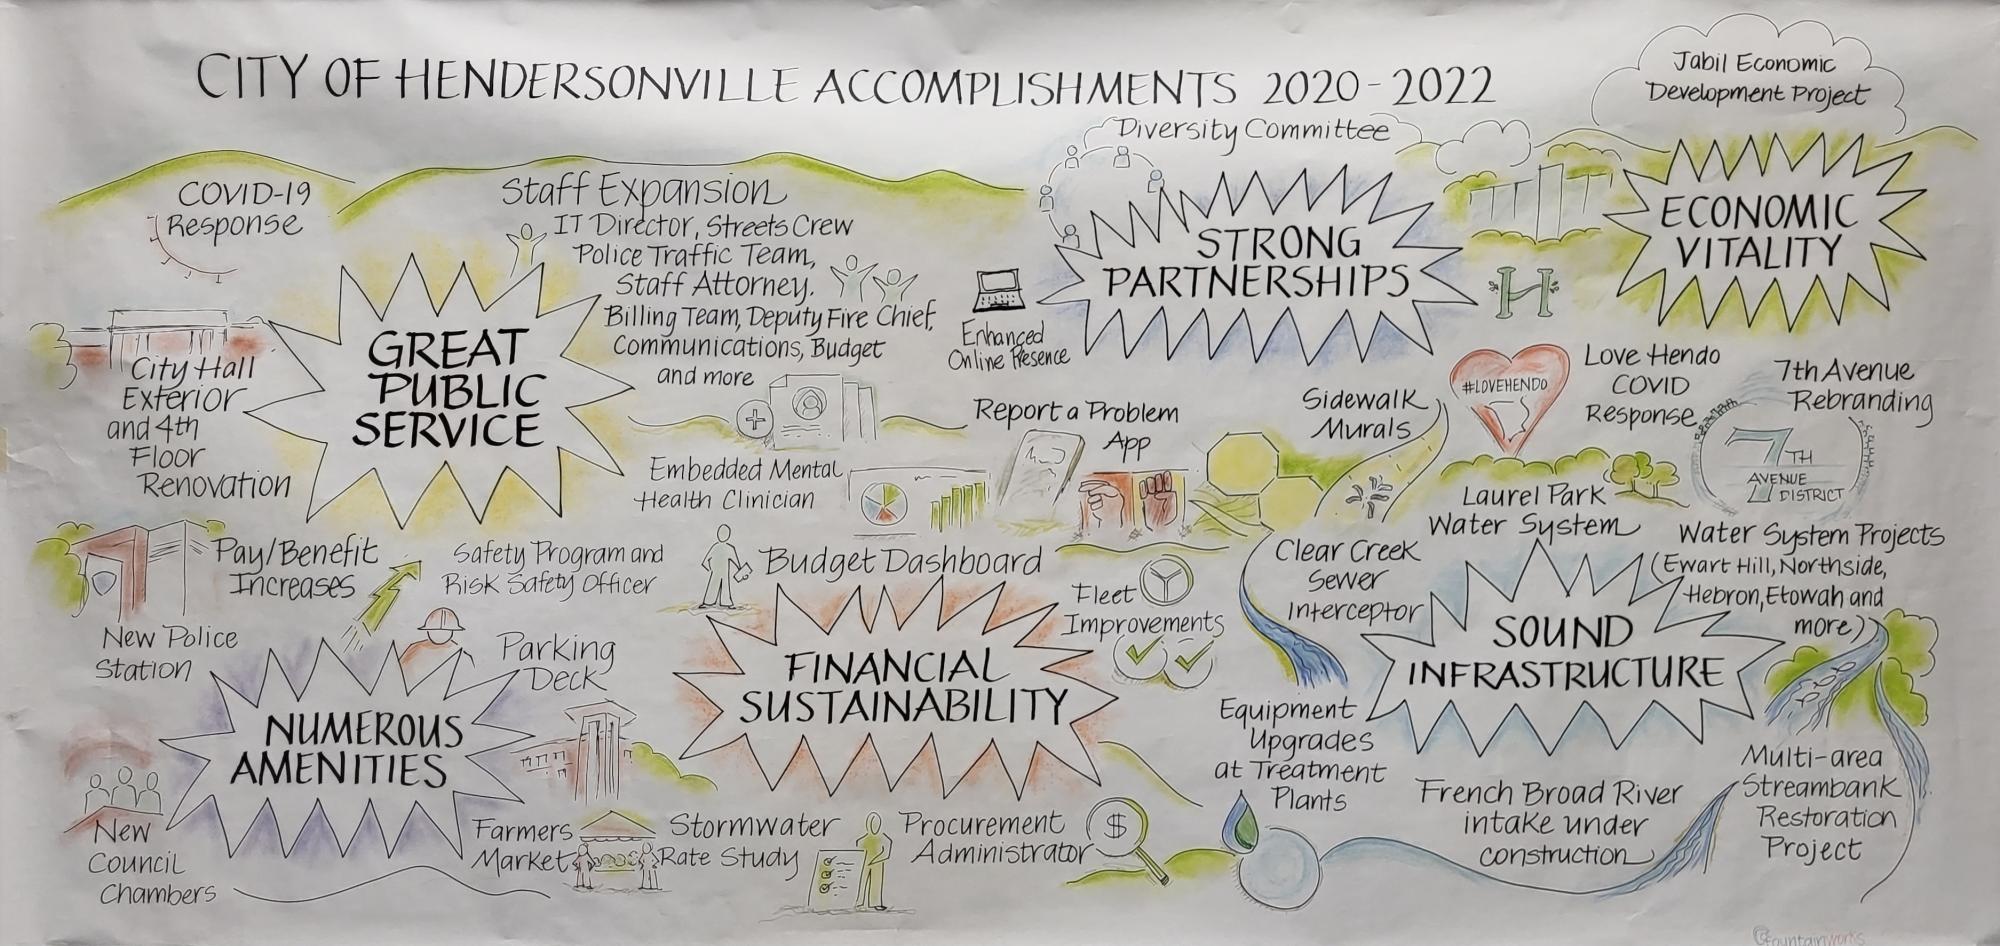 CITY OF HENDERSONVILLE ACCOMPLISHMENTS 2020-2022
Jabil Economic
Development Project
Diversity Committee
COVID-19
Response
Staff Expansion
IT Director, Streets Crew
Police Traffic Team,
Staff Attorney.
Billing Team, Deputy Fire Chief,
Communications, Budget
and more
GREAT
PUBLIC
SERVICE
City Hall
Exterior
and 4th
Floor
Renovation
Enhanced
Online Presence
STRONG
PARTNERSHIPS
ECONOMIC
VITALITY
H
#LOVEHENDO
Love Hendo
COVID
Response
7th Avenue
Rebranding
7TH
AVENUE
DISTRICT
Sidewalk
Murals
Report a Problem
App
Embedded Mental
Health Clinician
Pay/Benefit
Increases
Safety Program and
Risk Safety Officer
Budget Dashboard
New Police
Station
Parking
Deck
NUMEROUS
AMENITIES
New
Council
Chambers
Farmers
Market
FINANCIAL
SUSTAINABILITY
Fleet
Improvements
Stormwater
Rate Study
Procurement
Administrator
$
Laurel Park
Water System
Clear Creek
Sewer
Interceptor
Water System Projects
(Ewart Hill, Northside,
Hebron, Etowah and
more)
SOUND
INFRASTRUCTURE
Equipment
Upgrades
at Treatment
Plants
French Broad River
intake under
construction
Multi-area
Streambank
Restoration
Project
fountainworks